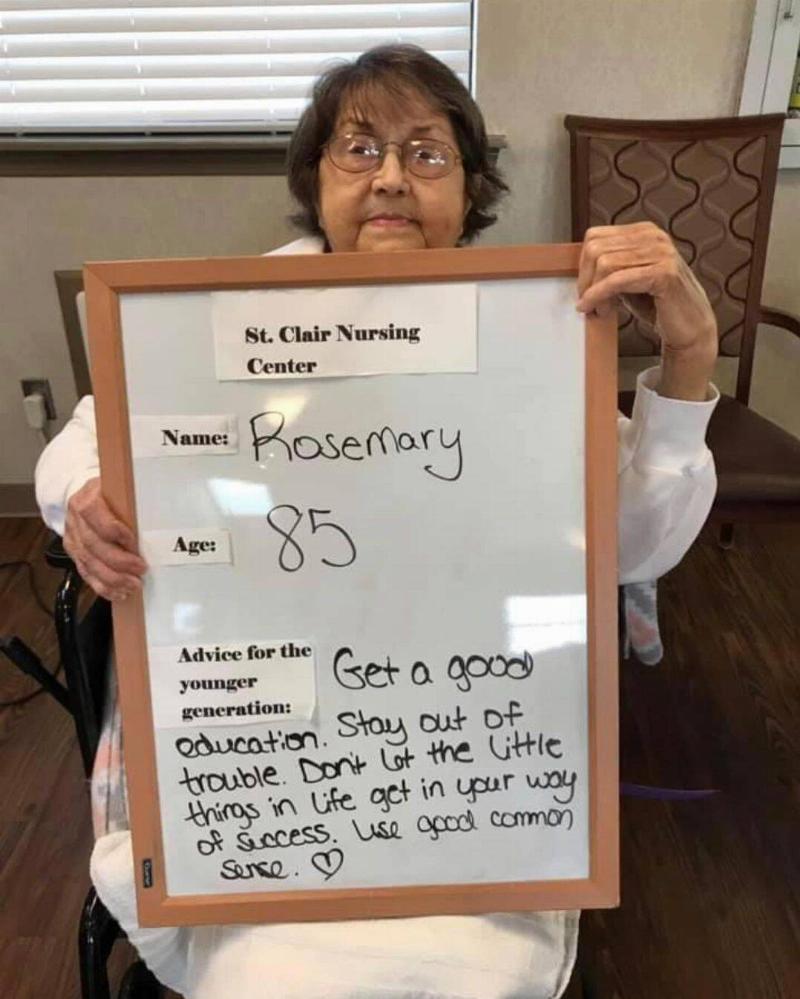 St. Clair Nursing
Center
Name: Rosemary
Age: 85
Advice for the
younger
generation:
Get a good
education. Stay out of
trouble. Don't let the little
things in life get in your way
of success. Use good common
sense. ♡